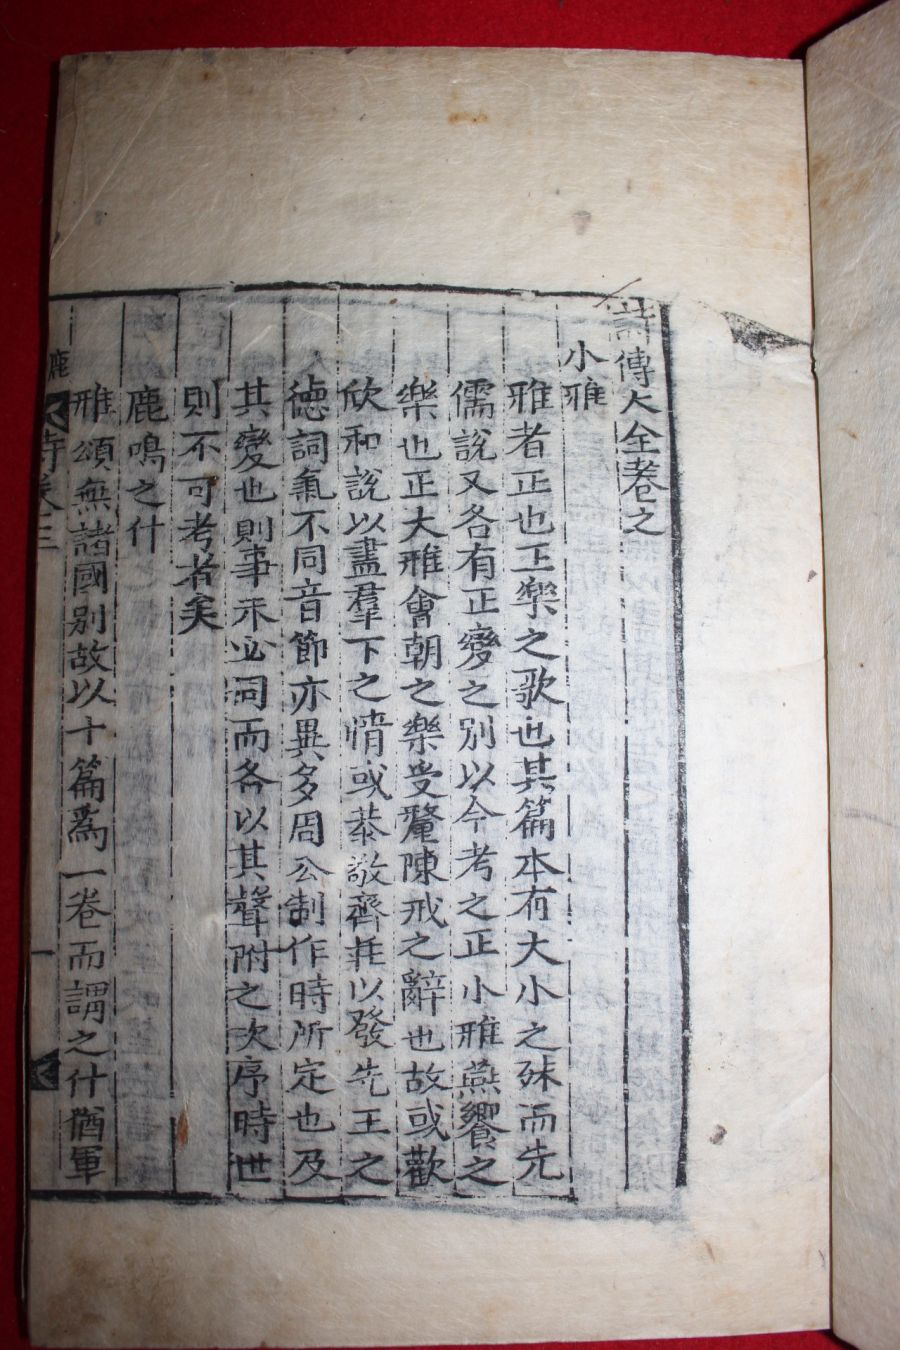 詩傳大全卷之
小雅
雅者正也正樂之歌也其篇本有大小之殊而先
儒說又各有正變之別以今考之正小雅燕饗之
樂也正大雅會朝之樂受釐陳戒之辭也故或歡
欣和說以盡羣下之情或恭敬齊莊以發先王之
德詞氣不同音節亦異多周公制作時所定也及
其變也則事未必同而各以其聲附之次序時世
則不可考者矣
鹿鳴之什
雅頌無諸國別故以十篇爲一卷而謂之什猶軍
鹿
詩卷三
一